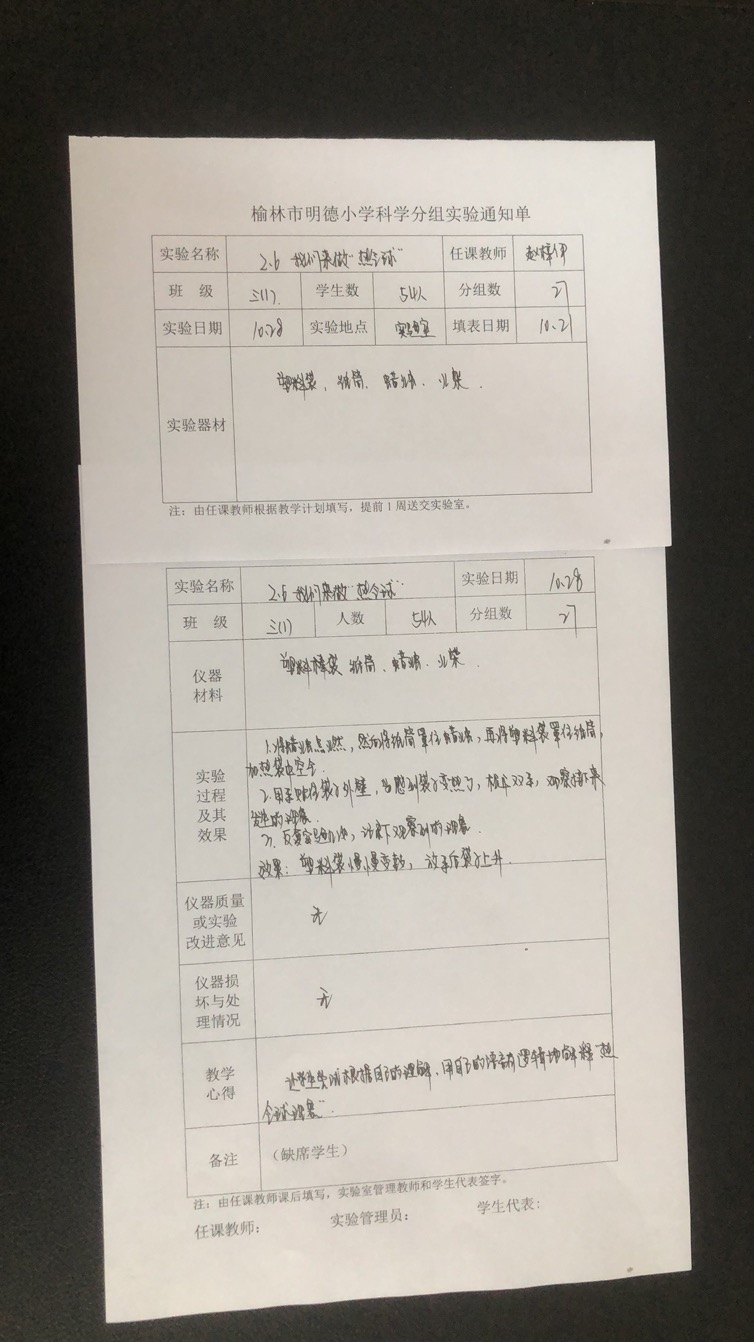 榆林市明德小学科学分组实验通知单
实验名称 2.6 我们来做"热气球" 任课教师 赵梓伊
班 级 三(1). 学生数 54人 分组数 27
实验日期 10.28 实验地点 实验室 填表日期 10.21
实验器材 塑料袋、纸筒、蜡烛、火柴.
注：由任课教师根据教学计划填写，提前1周送交实验室。
实验名称 2.6 我们来做"热气球" 实验日期 10.28
班 级 三(1) 人数 54人 分组数 27
仪器材料 塑料袋 纸筒、蜡烛、火柴.
实验过程及其效果
1.将蜡烛点燃，然后将纸筒罩住蜡烛，再将塑料袋罩住纸筒，
加热袋中空气.
2.用手贴住袋子外壁，当感到袋子变热了，松开双手，观察接下来
发生的现象.
3.反复实验几次，记录下观察到的现象.
效果：塑料袋慢慢变鼓，放手后袋子上升.
仪器质量或实验改进意见 无
仪器损坏与处理情况 无
教学心得 让学生尝试根据自己的理解、用自己的语言有逻辑地解释"热
气球现象"
备注 （缺席学生）
注：由任课教师课后填写，实验室管理教师和学生代表签字。
任课教师： 实验管理员： 学生代表：